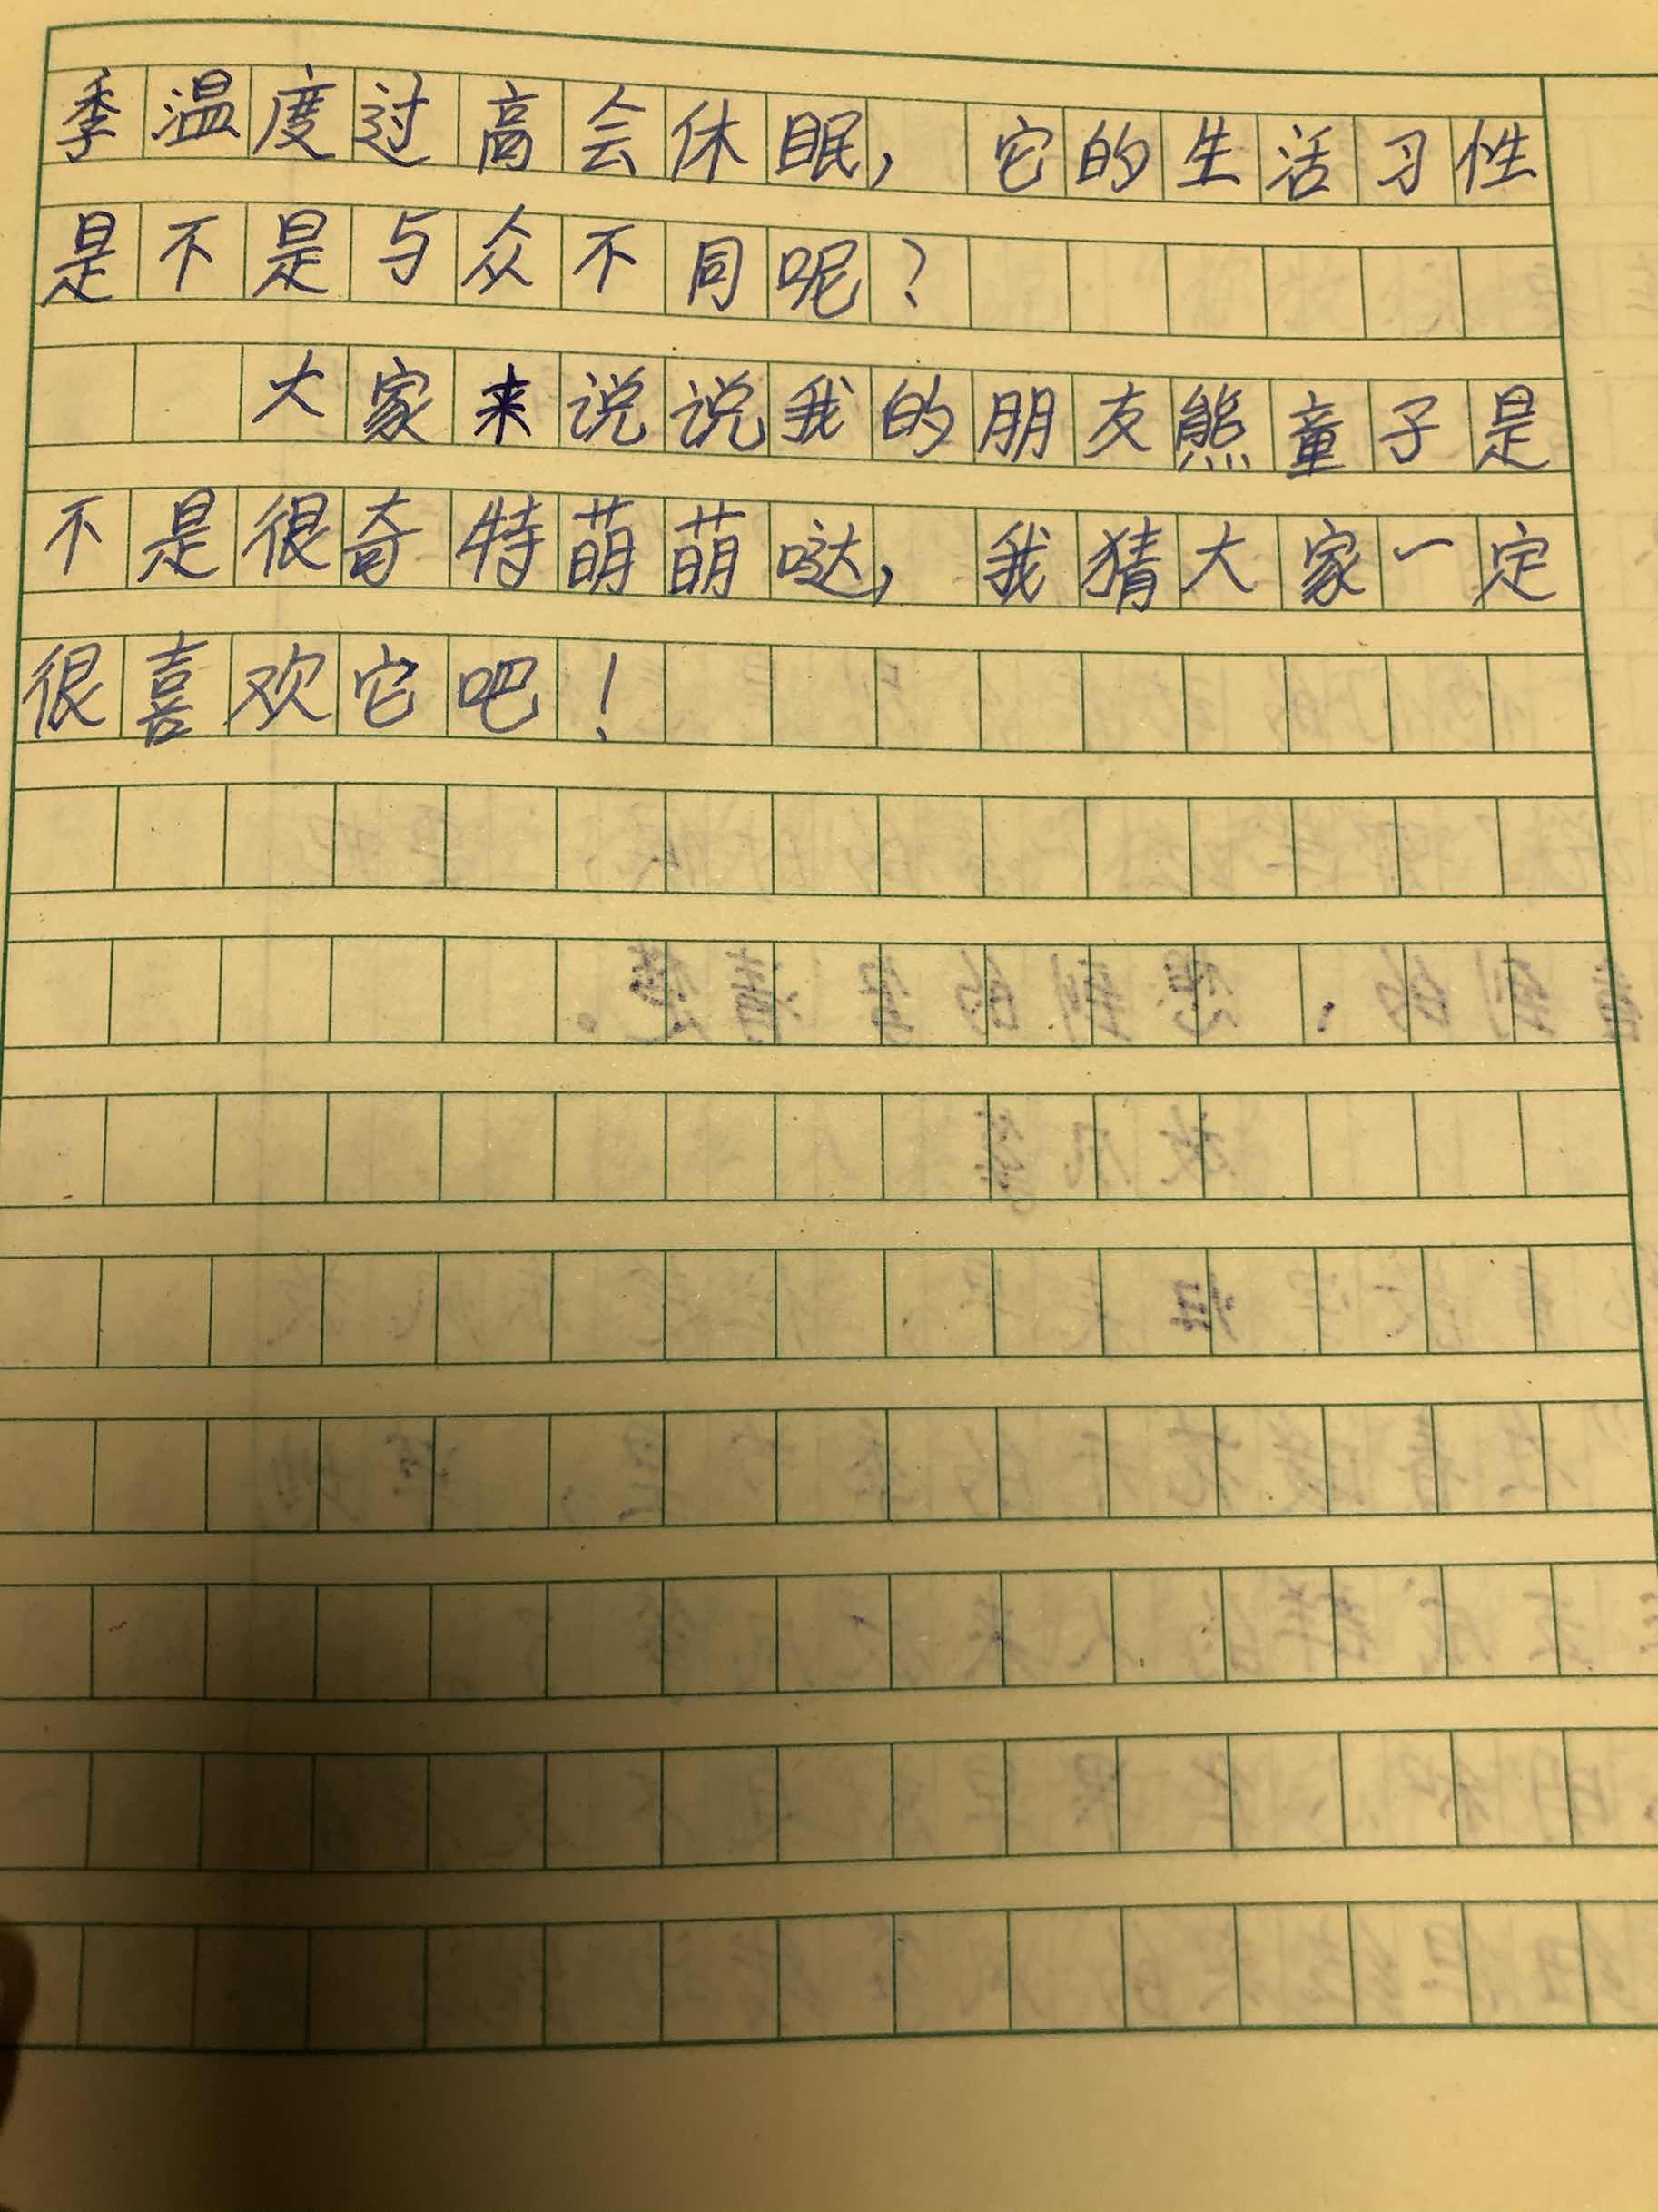 季温度过高会休眠，它的生活习性
是不是与众不同呢？
大家来说说我的朋友熊童子是
不是很奇特萌萌哒，我猜大家一定
很喜欢它吧！